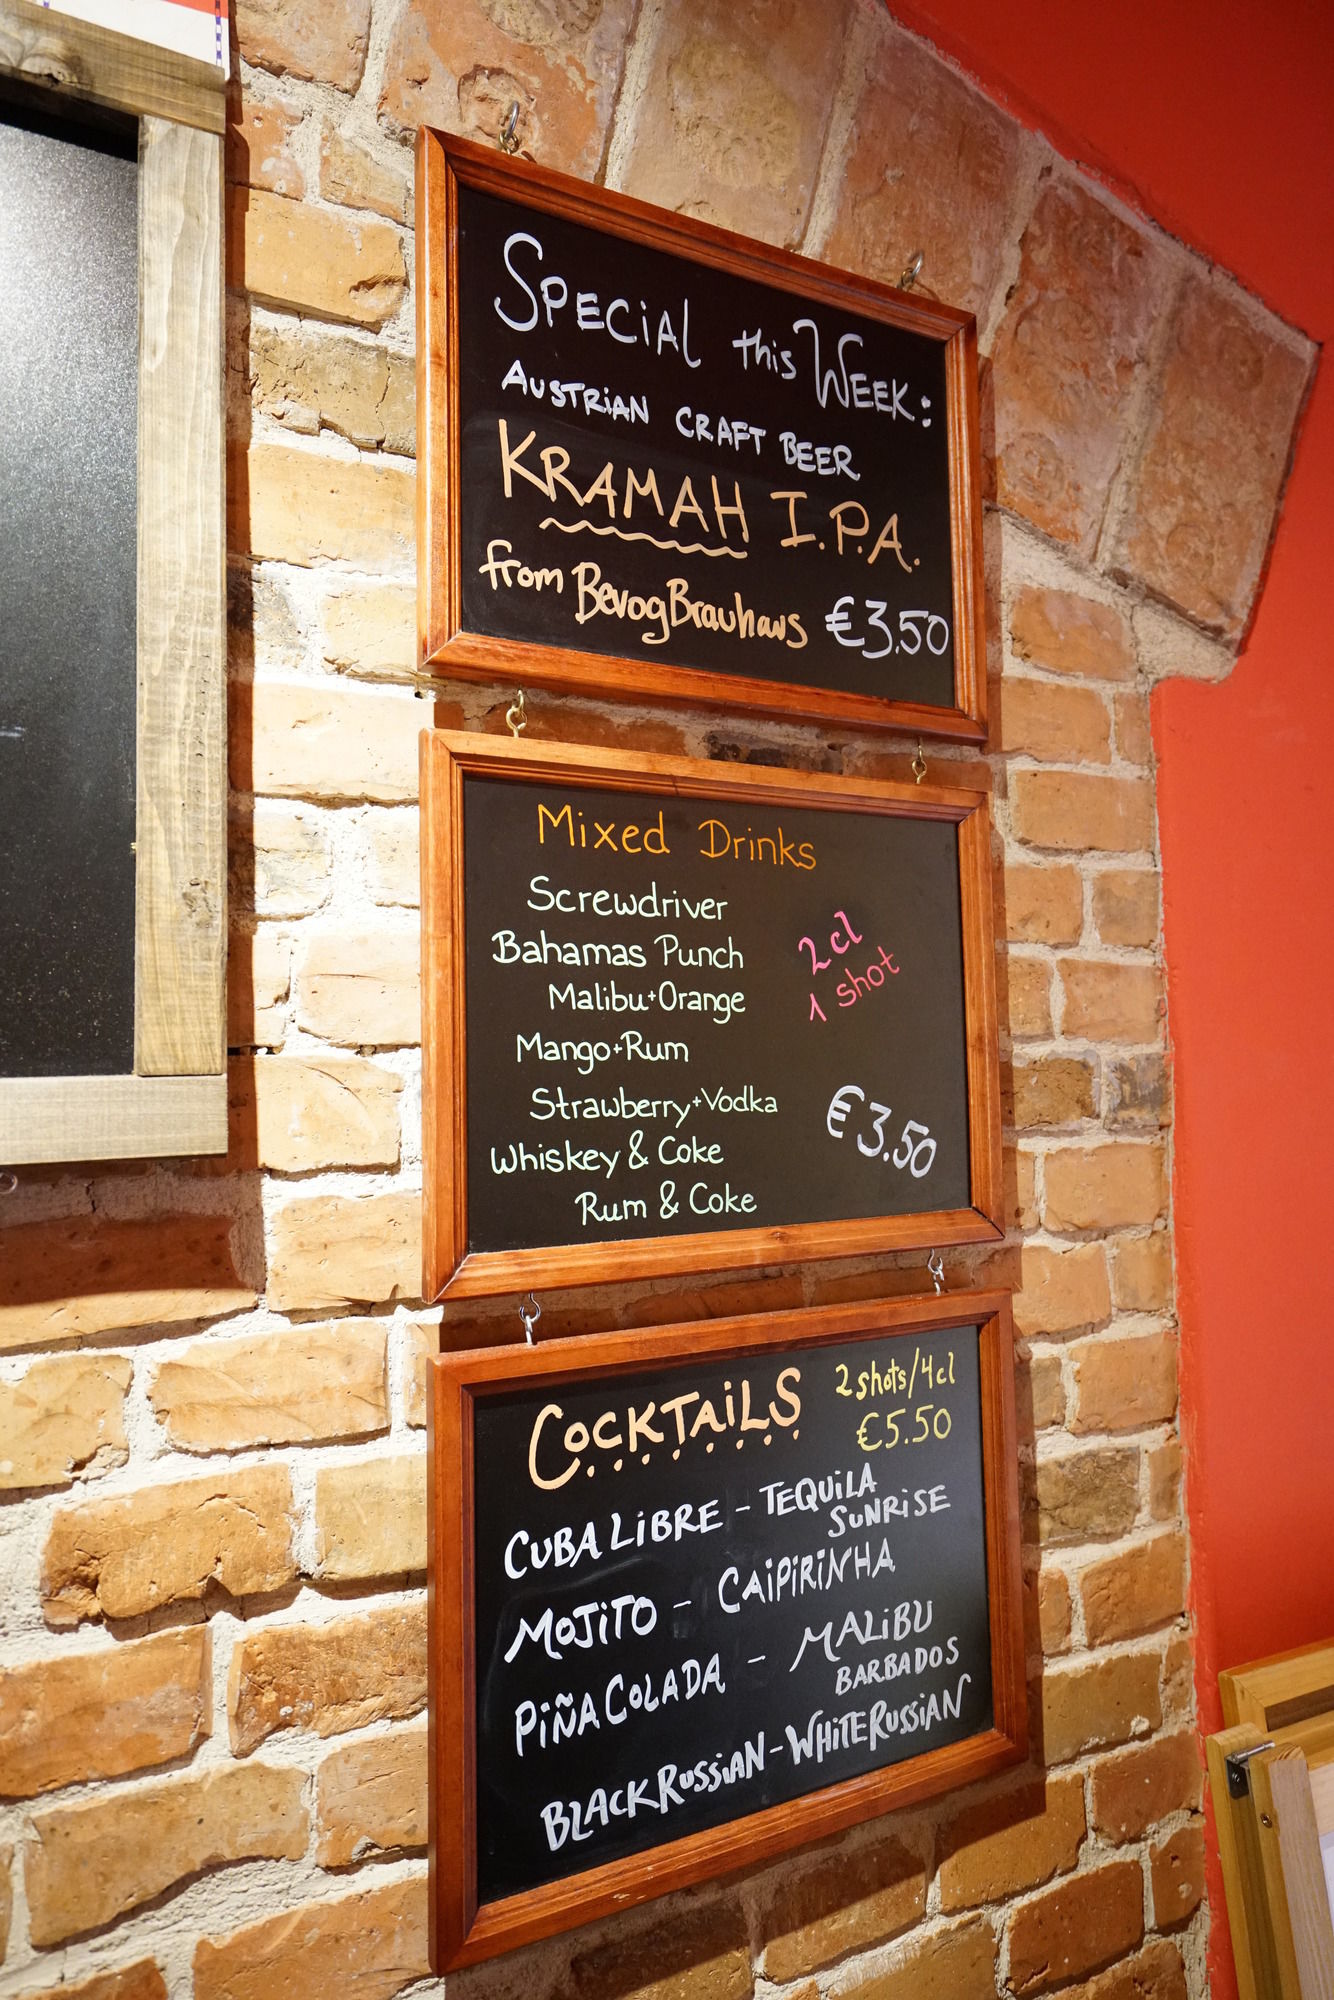 SPECiAL this WEEK:
AUSTRiAN CRAFT BEER
KRAMAH I.P.A.
from BevogBrauhaus €3.50
Mixed Drinks
Screwdriver
Bahamas Punch
Malibu+Orange
Mango+Rum
Strawberry+Vodka
Whiskey & Coke
Rum & Coke
2cl
1 shot
€3.50
COCKTAiLS
2shots/4cl
€5.50
CUBA LiBRE - TEQUiLA
SUNRiSE
MOJiTO - CAiPiRiNHA
PiÑA COLADA - MALiBU
BARBADOS
BLACK RUSSiAN - WHiTE RUSSiAN